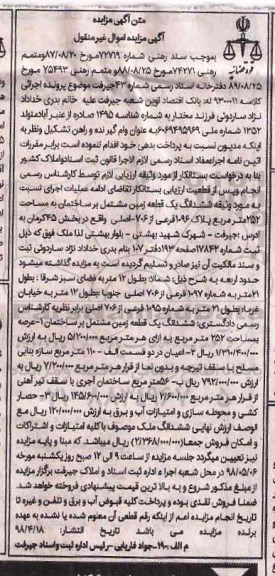 متن آگهی مزایده
آگهی مزایده اموال غیر منقول
بموجب سند رهنی شماره ۷۲۷۱۹مورخ ۸۷/۰۸/۲۰ومتمم
رهنی ۷۴۲۷۱مورخ ۸۸/۰۸/۲۵ و متمم رهنی ۷۵۴۹۳ مورخ
۸۹/۰۸/۲۵ دفترخانه اسناد رسمی شماره ۴۳جیرفت موضوع پرونده اجرائی
کلاسه ۹۳۰۰۱۱ له: بانک اقتصاد نوین شعبه جیرفت علیه خانم بدری خداداد
نژاد ساردوئی فرزند مختار به شماره شناسه ۱۴۹۵ صادره از عنبر آبادمتولد
۱۳۵۲ شماره ملی ۶۰۶۹۴۹۵۹۶۹به عنوان وام گیرنده و راهن تشکیل ونظر به
اینکه مدیون نسبت به پرداخت بدهی خود اقدام ننموده است برابر مقررات
آئین نامه اجرامفاد اسناد رسمی لازم الاجرا قانون ثبت اسنادواملاک کشور
بنا به درخواست بستانکار از مورد وثیقه ارزیابی لازم توسط کارشناس رسمی
انجام وپس از قطعیت ارزیابی بستانکار تقاضای ادامه عملیات اجرای نسبت
به مورد وثیقه ششدانگ یک قطعه زمین مشتمل بر ساختمان به مساحت
۲۵۲متر مربع پلاک ۱۰۹۶فرعی از ۷۰۶-اصلی واقع در بخش ۴۵کرمان به
ادرس :جیرفت - شهرک شهید بهشتی - بلوار بهشتی لذا ملک فوق که ذیل
ثبت شماره ۱۷۸۴۲صفحه ۱۹۳دفتر ۱۰۷ بنام بدری خداداد نژاد ساردوئی ثبت
و سند مالکیت آن نیز صادر و تسلیم گردیده است به مزایده گذاشته میشود
حدود اربعه به شرح ذیل: شمالا: بطول ۱۲ متر به فضای سبز شرقا : بطول
۲۱متر به شماره ۱۰۹۷ فرعی از ۷۰۶ اصلی جنوبا بطول ۱۲متر به خیابان
غربا: بطول ۲۱ متر به شماره ۱۰۹۵ فرعی از ۷۰۶ اصلی برابر نظریه کارشناس
رسمی دادگستری: ششدانگ یک قطعه زمین مشتمل بر ساختمان ۱-عرصه
به مساحت ۲۵۲ متر مربع به ازای هر متر مربع ۵/۲۰۰/۰۰۰ ریال به ارزش
۱/۳۱۰/۴۰۰/۰۰۰ ریال ۲-اعیان در دو قسمت الف - ۱۱۰ متر مربع سازه بنایی
مسلح با سقف تیرچه و بدون نما از قرار هر متر مربع ۷/۲۰۰/۰۰۰ ریال به
ارزش ۷۹۲/۰۰۰/۰۰۰ ریال ب- ۵۶متر مربع ساختمان آجری با سقف تیر آهنی
از قرار هر متر مربع ۲/۶۰۰/۰۰۰ ریال به ارزش ۱۴۵/۶۰۰/۰۰۰ ریال ۳- حصار
کشی و محوطه سازی و امتیازات آب و برق به ارزش ۱۲۰/۰۰۰/۰۰۰ ریال مع
الوصف ارزش نهایی ششدانگ ملک موصوف با کلیه امتیازات و اشتراکات
و امکان فروش جمعا(۲/۳۶۸/۰۰۰/۰۰۰) ریال میباشد که مبنا و پایه مزایده
نیز تعیین میگردد جلسه مزایده از ساعت ۹ الی ۱۲ صبح روز یکشنبه مورخه
۹۸/۰۵/۰۶ در محل شعبه اجرا ء اداره ثبت اسناد و املاک جیرفت برگزار مزایده
از مبلغ مذکور شروع و به بالا ترین قیمت پیشنهادی فروخته خواهد شد.
ضمنا فروش نقدی بوده و پرداخت کلیه قبوض آب و برق و تلفن و غیره تا
تاریخ انجام مزایده اعم از اینکه رقم قطعی آن معلوم شده یا نشده به عهده
برنده مزایده می باشد تاریخ انتشار: ۹۸/۴/۱۸
م الف :۱۹۰-جواد فاریابی - رئیس اداره ثبت واسناد جیرفت